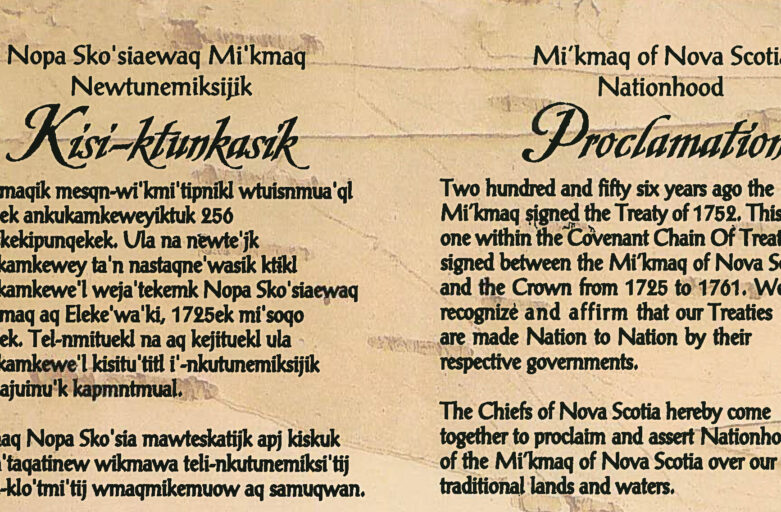 Nopa Sko'siaewaq Mi'kmaq
Newtunemiksijik
Kisi-ktunkasik
maqik mesqn-wi'kmi'tipnikl wtuisnmua'ql
ek ankukamkeweyiktuk 256
kekipunqekek. Ula na newte'jk
kamkewey ta'n nastaqne'wasik ktikl
kamkewe'l weja'tekemk Nopa Sko'siaewaq
maq aq Eleke'wa'ki, 1725ek mi'soqo
ek. Tel-nmituekl na aq kejituekl ula
kamkewe'l kisitu'titl i'-nkutunemiksijik
ajuinu'k kapmntmual.
aq Nopa Sko'sia mawteskatijk apj kiskuk
'taqatinew wikmawa teli-nkutunemiksi'tij
-klo'tmi'tij wmaqmikemuow aq samuqwan.
Mi'kmaq of Nova Scotia
Nationhood
Proclamation
Two hundred and fifty six years ago the
Mi'kmaq signed the Treaty of 1752. This
one within the Covenant Chain Of Treat
signed between the Mi'kmaq of Nova Sc
and the Crown from 1725 to 1761. We
recognize and affirm that our Treaties
are made Nation to Nation by their
respective governments.
The Chiefs of Nova Scotia hereby come
together to proclaim and assert Nationho
of the Mi'kmaq of Nova Scotia over our
traditional lands and waters.